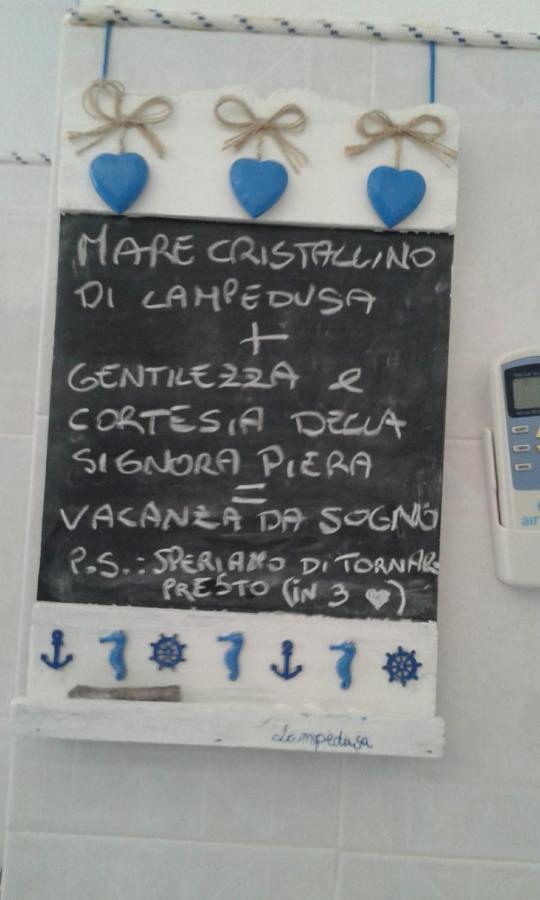 MARE CRISTALLINO
DI LAMPEDUSA
+
GENTILEZZA e
CORTESIA DELLA
SIGNORA PIERA
=
VACANZA DA SOGNO
P.S.: SPERIAMO DI TORNARE
PRESTO (IN 3 ♥)
Lampedusa